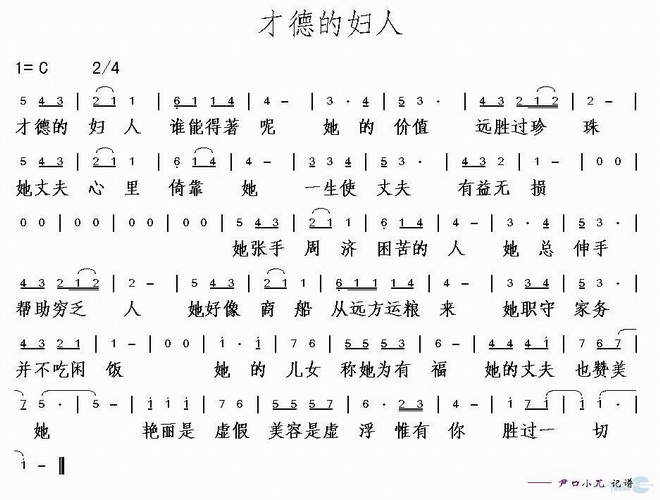 才德的妇人
1= C 2/4
5 4 3 | 2 1 1 | 6 1 1 4 | 4 - | 3 · 4 | 5 3 · | 4 3 2 1 2 | 2 - |
才德的 妇 人 谁能得著 呢 她 的 价值 远胜过珍 珠
5 4 3 | 2 1 1 | 6 · 1 4 | 4 - | 3 3 4 | 5 3 · | 4 3 2 1 | 1 - | 0 0 |
她丈夫 心 里 倚靠 她 一生使 丈夫 有益无 损
0 0 | 0 0 | 0 0 | 0 0 | 5 4 3 | 2 1 1 | 6 1 4 | 4 - | 3 · 4 | 5 3 · |
她张手 周 济 困苦的 人 她 总 伸手
4 3 2 1 2 | 2 - | 5 4 3 | 2 1 1 | 6 1 1 4 | 4 - | 3 3 4 | 5 3 · |
帮助穷乏 人 她好像 商 船 从远方运粮 来 她职守 家务
4 3 2 1 | 1 - | 0 0 | 1 · 1 | 7 6 | 5 5 5 6 7 | 5 - | 4 4 4 | 7 6 7 |
并不吃闲 饭 她 的 儿女 称她为有 福 她的丈夫 也赞美
7 5 · | 5 - | 1 1 1 1 | 7 6 7 | 5 5 5 7 | 3 · | 6 · 2 3 | 4 - | 1 7 1 | 1 1 · |
她 艳丽是 虚假 美容是虚 浮 惟有 你 胜过一 切
1 - ‖
—— 尹口小兀 记谱